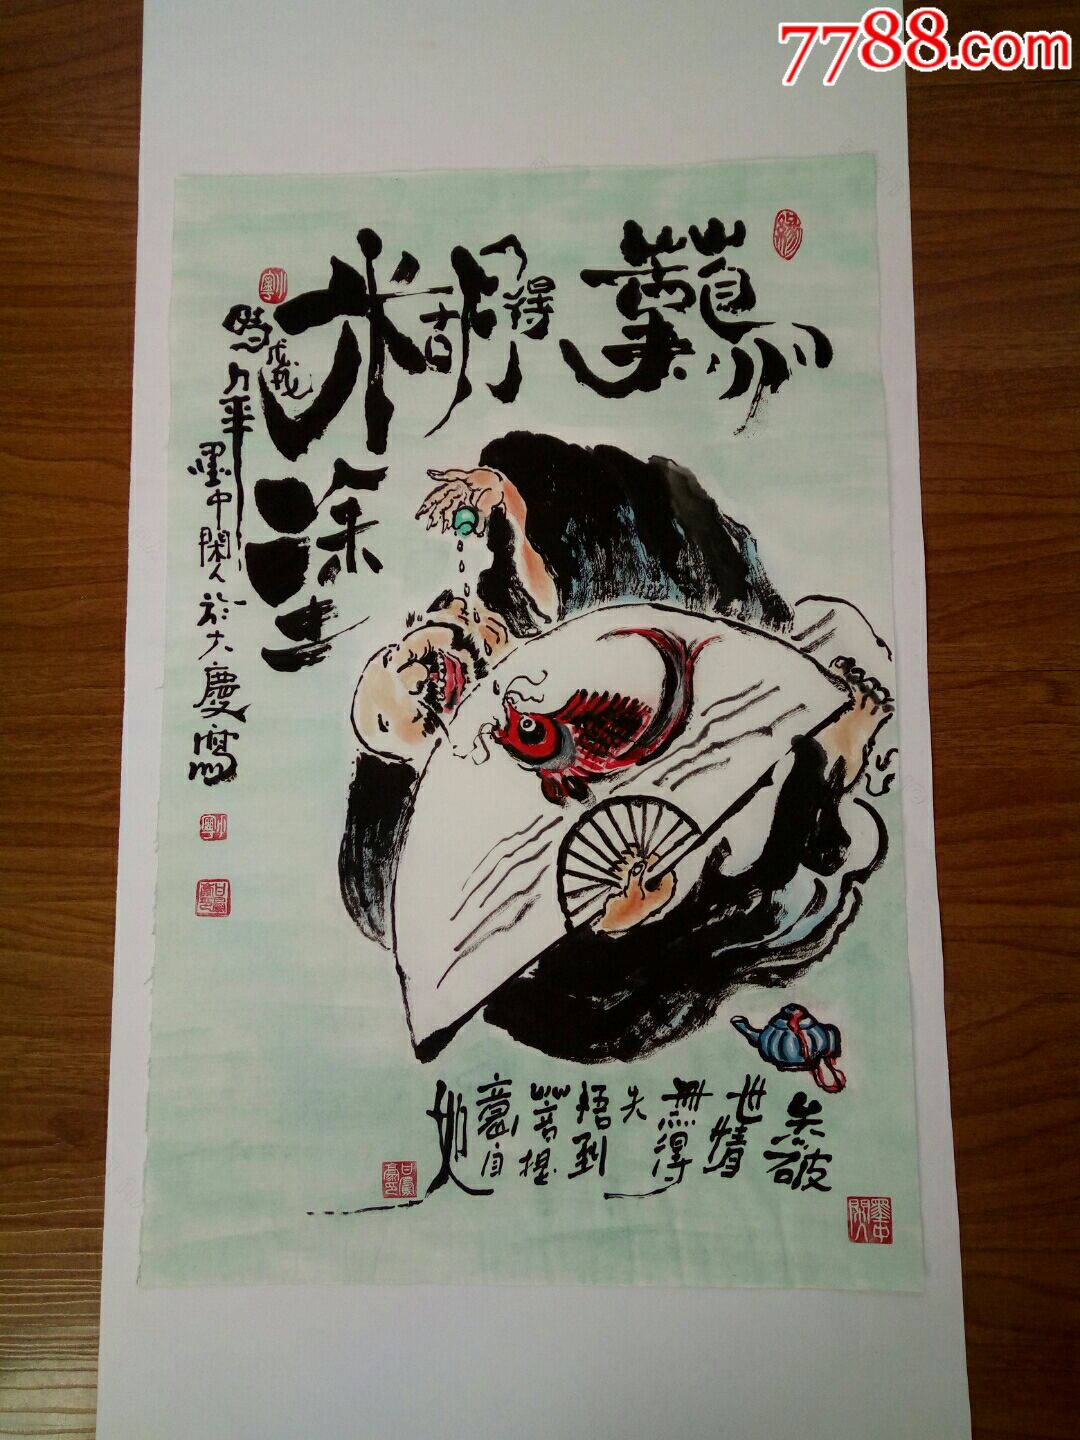 7788.com
難得糊塗
時戊戌
墨中閑人於大慶寫
破
世情
無得
失
悟到
菩提
意自
如
緣
墨中閑人